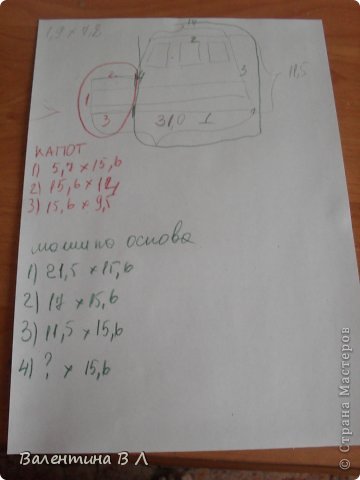 1,9 x 7,2
17
2
2
4
3
11,5
1
3
31,0
1
КАПОТ
1) 5,7 x 15,6
2) 15,6 x 12
3) 15,6 x 9,5
машина основа
1) 21,5 x 15,6
2) 17 x 15,6
3) 11,5 x 15,6
4) ? x 15,6
Валентина В Л
© Страна Мастеров